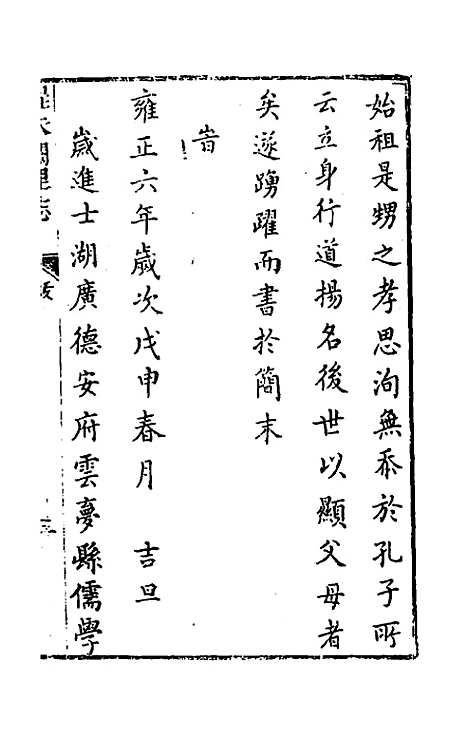 始祖是甥之孝思洵無忝於孔子所
云立身行道揚名後世以顯父母者
矣遂踴躍而書於簡末
旹
雍正六年歲次戊申春月　吉旦
歲進士湖廣德安府雲夢縣儒學
闕里志
跋